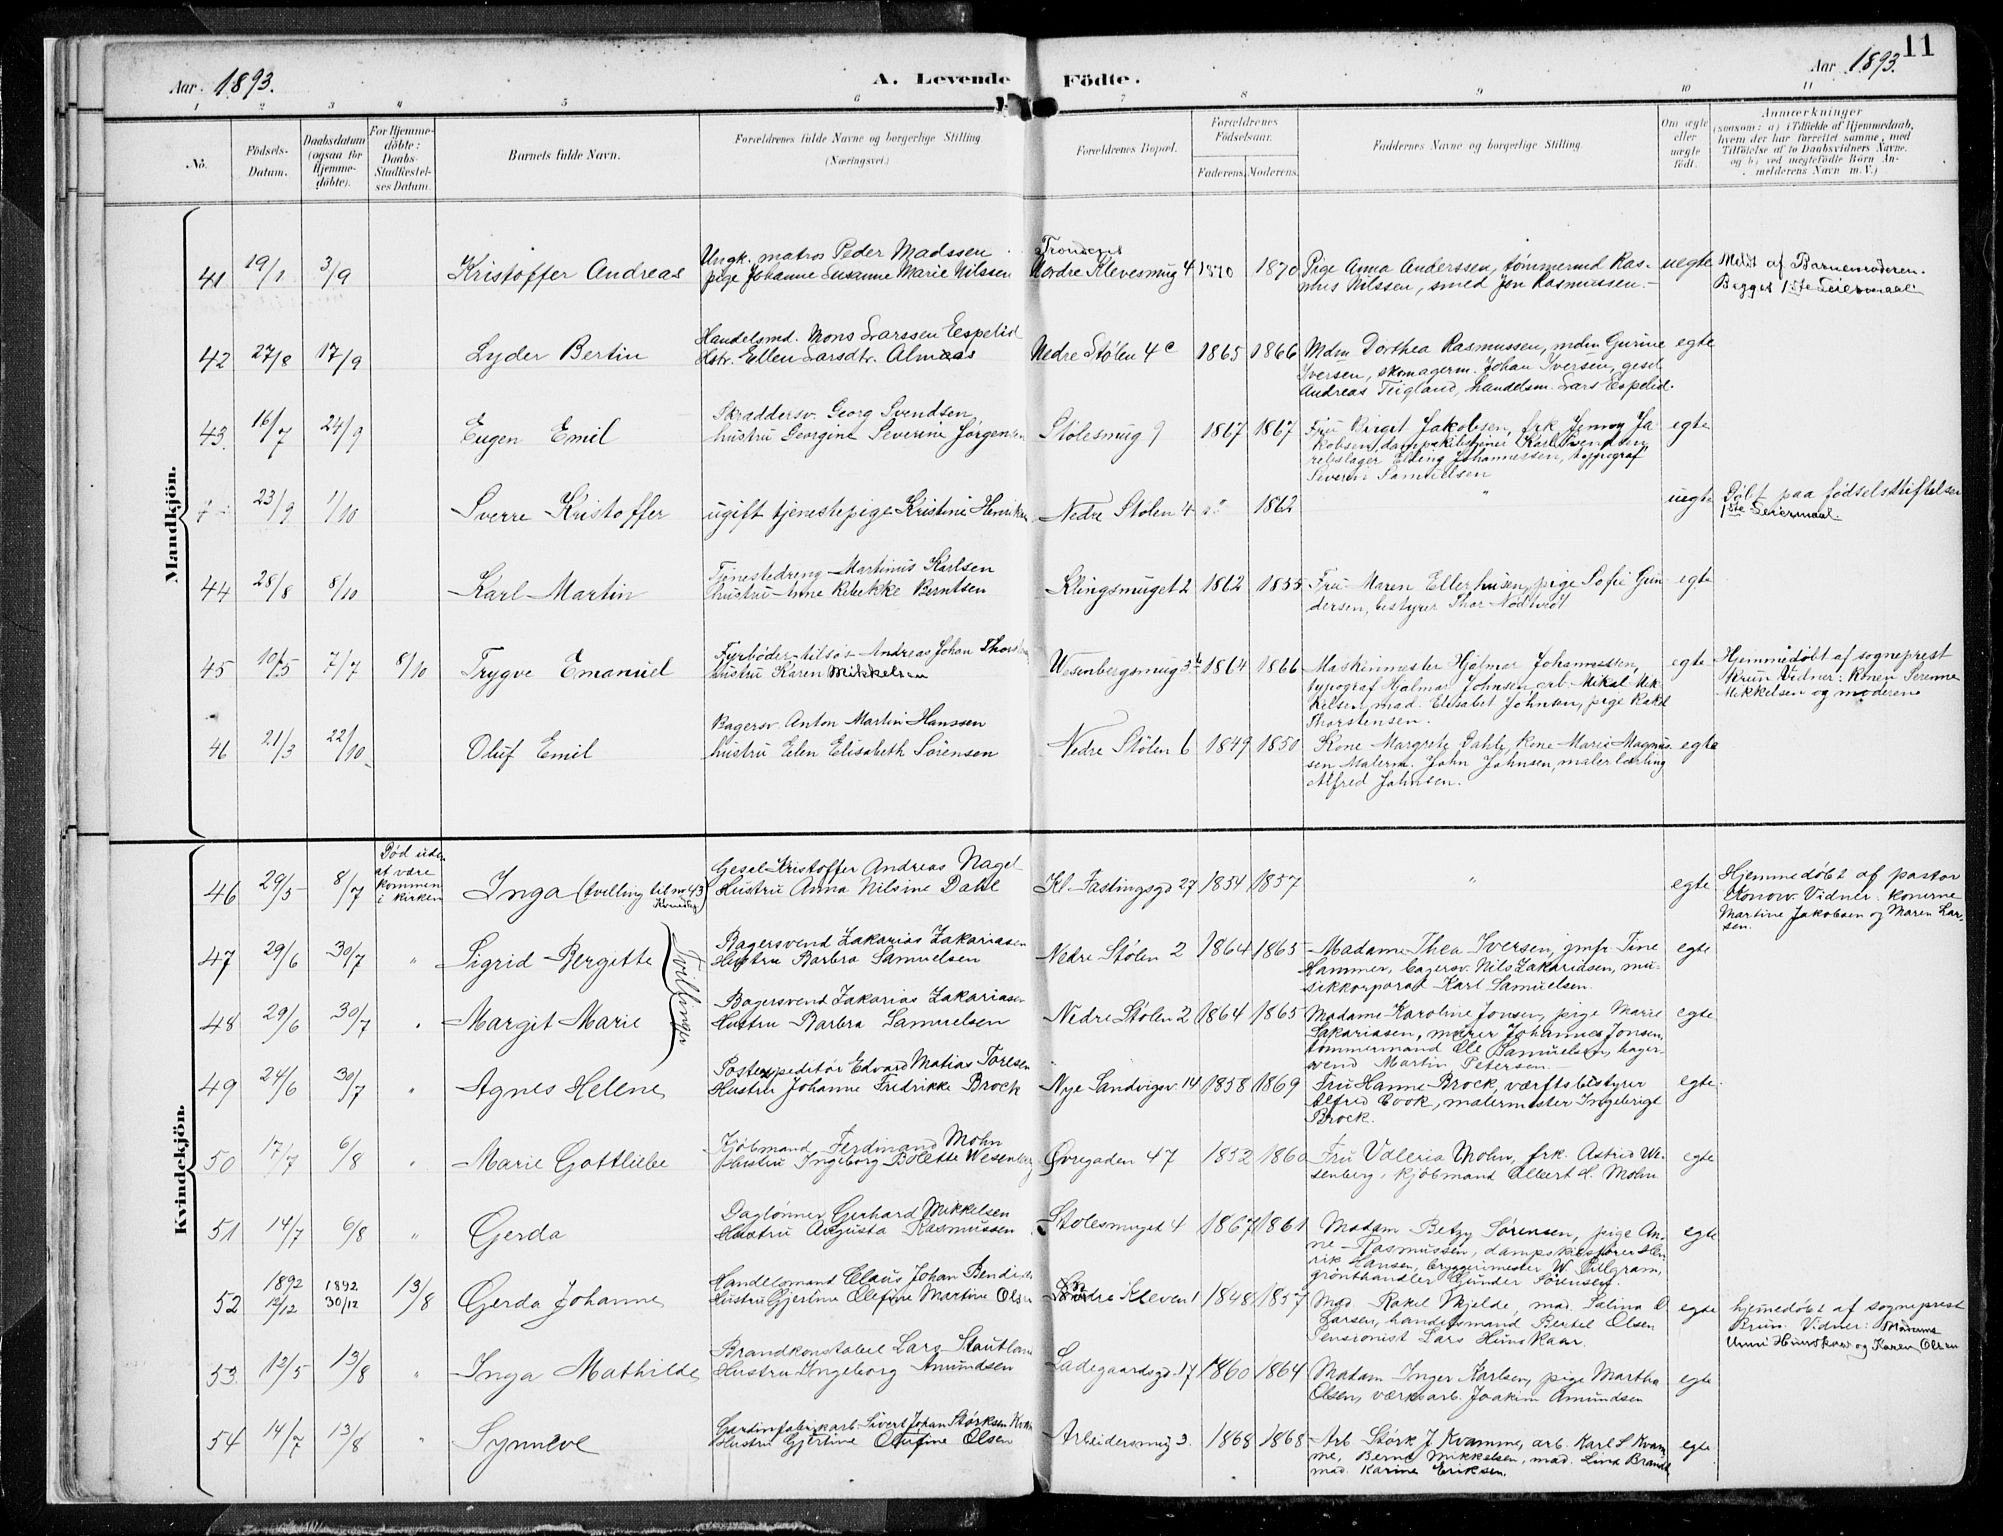 Aar 1893.
A. Levende Födte.
Aar 1893.
11
1 2 3 4 5 6 7 8 9 10 11
No.
Födsels-Datum.
Daabsdatum (ogsaa for Hjemme-döbte).
For Hjemme-döbte: Daabs-Stadfæstel-ses Datum.
Barnets fulde Navn.
Forældrenes fulde Navne og borgerlige Stilling. (Næringsvei.)
Forældrenes Bopæl.
Forældrenes Födselsaar.
Faderens. Moderens.
Faddernes Navne og borgerlige Stilling.
Om ægte eller uægte födt.
Anmærkninger
(saasom: a) i Tilfælde af Hjemmedaab, hvem der har forrettet samme, med Tilföielse af to Daabsvidners Navne. og b) ved uægtefödte Börn An-melderens Navn m. V.)
Mandkjön.
41 19/1 3/9 Kristoffer Andreas
Ungk. matros Peder Madssen
pige Johanne Susanne Marie Nilssen
Nordre Klevesmug 4 1870 1870
Pige Anna Anderssen, tømmermd Ras-
mus Nilssen, smed Jon Rasmussen.
uegte
Meldt af Barnemoderen.
Begges 1ste Leiermaal
42 27/8 17/9 Lyder Bertin
Handelsmd. Mons Larssen Espelid
Hstr. Ellen Larsdtr. Almaas
Nedre Stølen 4c 1865 1866
Mdm Dorthea Rasmussen, mdm Gurine
Iversen, skomagerm. Johan Iversen, gesel
Andreas Teigland, handelsm. Lars Espelid.
egte
43. 16/7 24/9 Eugen Emil
Skraddersv. Georg Svendsen
hustru Georgine Severine Jørgensen
Stølesmug 9 1867 1867
Fru Birgit Jakobsen, frk Jenny Ja-
kobsen, Karl Svendsen,
rebslager Elling Johannessen, typograf
Severin Samuelsen
egte
23/9 1/10 Sverre Kristoffer
ugift tjenestepige Kristine Henriksen
Nedre Stølen 4 " 1862
"
uegte
Døbt paa fødselsstiftelsen
1ste Leiermaal.
44 28/8 8/10 Karl Martin
Tjenestedreng Martinus Karlsen
hustru Anne Rebekke Berntsen
Klingsmuget 2 1862 1855
Fru Maren Ellerhusen, pige Sofie Gun-
dersen, bestyrer Thor Nødtvedt
egte
45 10/5 7/7 8/10 Trygve Emanuel
Fyrbøder tilsøs Andreas Johan
hustru Karen Mikkelsen
Wesenbergsmug 3b 1864 1866
Maskinmester Hjalmar Johannessen,
typograf Hjalmar Johnsen, arb. Mikal Mik-
kelsen, mad. Elisabet Johnsen, pige Rakel
Thorstensen.
egte
Hjemmedøbt af sogneprest
Brun. Vidner: Konen Serenne
Mikkelsen og moderen
46 21/3 22/10 Oluf Emil
Bagersv. Anton Martin Hanssen
hustru Elen Elisabeth Sørensen
Nedre Stølen 6 1849 1850
Kone Margrete Dahle, Kone Marie Magnus-
sen Malerm. John Johnsen, malerlærling
Alfred Johnsen.
egte
Kvindekjön.
46 29/5 8/7 Død uden
at være
kommen
i kirken
Inga (tvilling til no 43
Gesel Kristoffer Andreas Nagel
Hustru Anna Nilsine Dahl
Kl. Fastingsgd 27 1854 1857
"
egte
Hjemmedøbt af pastor
Konow. Vidner: konerne
Martine Jakobsen og Maren Lar-
sen.
47 29/6 30/7 " Sigrid Bergitte
Tvillinger
Bagersvend Zakarias Zakariasen
Hustru Barbra Samuelsen
Nedre Stølen 2 1864 1865
Madame Thea Iversen, jmfr. Tine
Hammer, bagersv. Nils Zakariasen, mu-
sikkorporal Karl Samuelsen.
egte
48 29/6 30/7 " Margit Marie
Bagersvend Zakarias Zakariasen
Hustru Barbra Samuelsen
Nedre Stølen 2 1864 1865
Madame Karoline Jonsen, pige Marie
Sakariasen, murer Johannes Jonsen,
tømmermand Ole Samuelsen, bager-
svend Martin Petersen
egte
49 24/6 30/7 " Agnes Helene
Postexpeditør Edvard Matias Toresen
Hustru Johanne Fredrikke Brock
Nye Sandvigsv. 14 1858 1869
Fru Hanne Brock, værftsbestyrer
Alfred Cook, malermester Ingebrigt
Brock.
egte.
50 17/7 6/8 " Marie Gottliebe
Kjøbmand Ferdinand Mohn
Hustru Ingeborg Bolette Wesenberg
Øvregaden 47 1852 1860
Fru Valeria Mohn, frk. Astrid We-
senberg, kjøbmand Albert H. Mohn
egte
51 14/7 6/8 " Gerda
Dagtønner Gerhard Mikkelsen
Hustru Augusta Rasmussen
Stølesmuget 4 1867 1861
Madam Betzy Sørensen, pige An-
ne Rasmussen, dampskibsfører Hen-
rik Hansen, bryggerimester W. Pilgram,
grønthandler Gunder Sørensen.
egte
52 1892 12/12 1892 30/12 13/8 Gerda Johanne
Handelsmand Claus Johan Bendixen
Hustru Gjertine Olefine Martine Olsen
Søndre Kleven 1 1848 1857
Mad. Rakel Mjelde, mad. Salina O
Larsen, handelsmand Bertel Olsen
Pensionist Lars Hunskaar.
egte
hjemedøbt af sogneprest
Brun. Vidner: Madams
Unni Hunskaar og Karen Olsen
53 12/5 13/8 " Inga Mathilde
Brandkonstabel Lars Stautland
Hustru Ingeborg Amundsen
Ladegaardsgd. 17 1860 1864
Madam Inger Karlsen, pige Martha
Olsen, værksarb. Joakim Amundsen
egte
54 14/7 13/8 " Synneve
Gardinfabrikarb. Sivert Johan Størksen
Hustru Gjertine Olufine Olsen
Arbeidersmug 3. 1868 1868
Arb Størk J Kvamme, arb. Karl S Kvam-
me, Bernt Mikkelsen, mad. Lina Brandt,
mad. Karine Eriksen.
egte